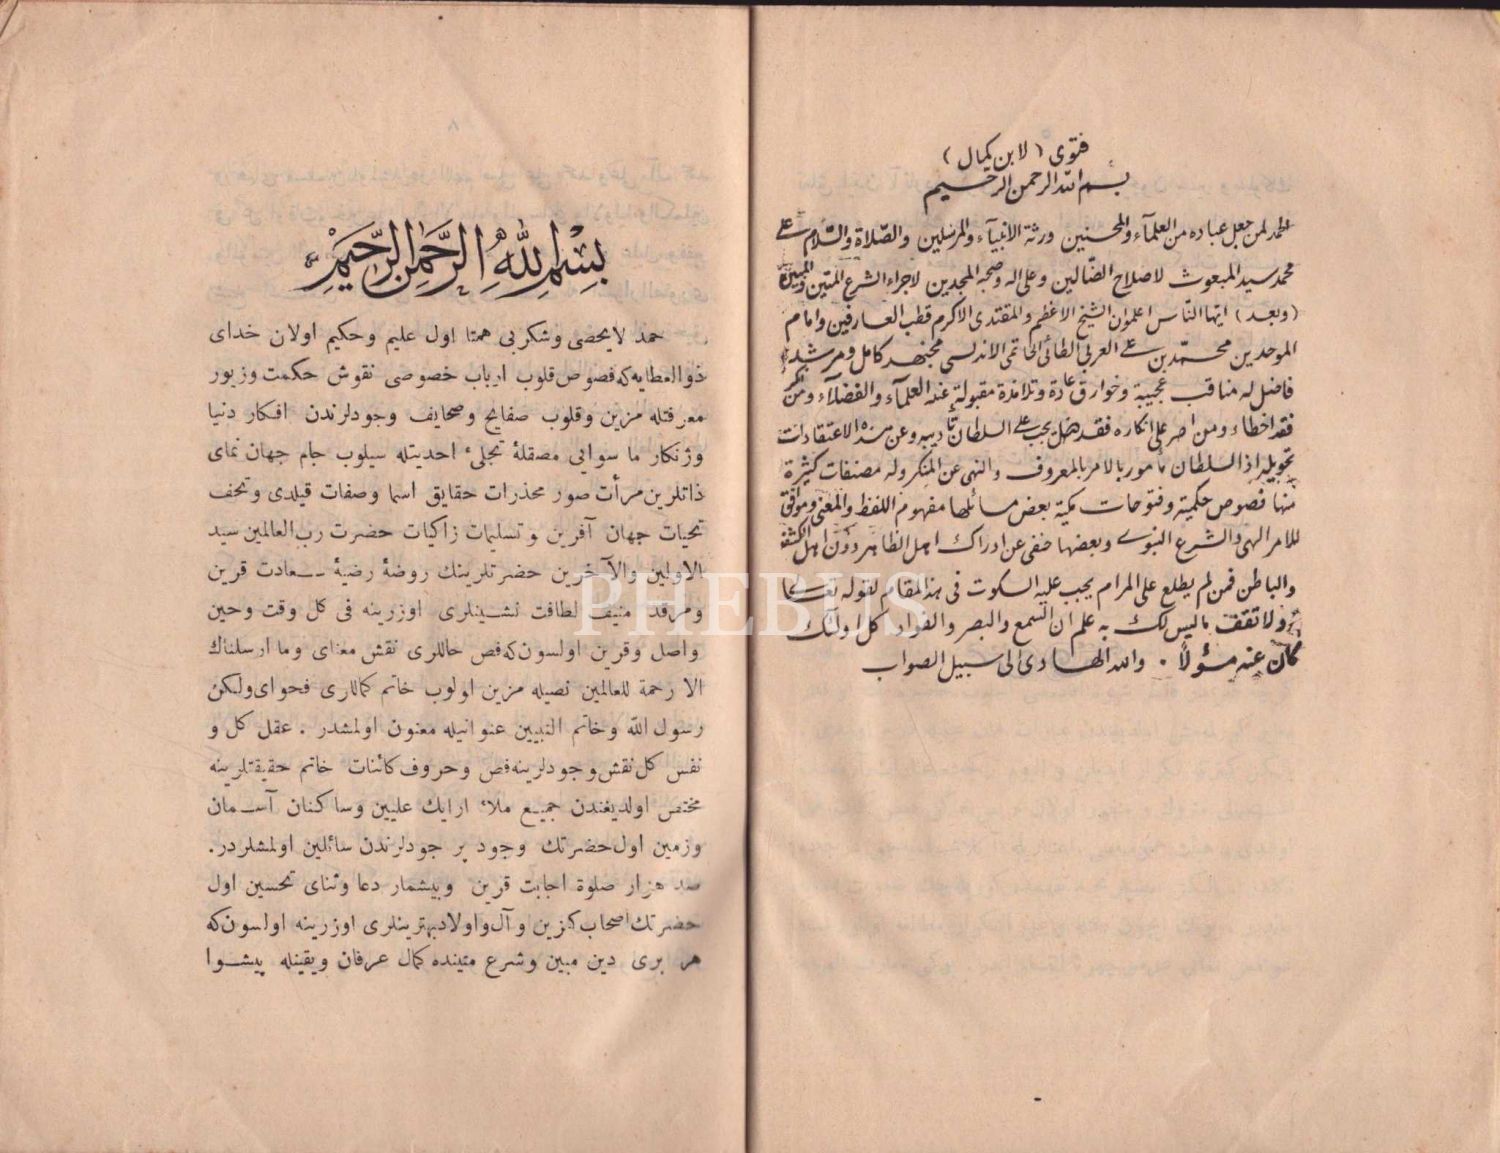 فتوى (لابن كمال)
بسم الله الرحمن الرحيم
الحمد لمن جعل عباده من العلمآء والمحسنين ورثة الانبيآء والمرسلين والصّلاة والسّلام على
محمد سيد المبعوث لاصلاح الضّالين وعلى اله وصحبه المجدين لاجراء الشرع المتين والمبين
(وبعد) ايّها النّاس اعلموان الشيخ الاعظم والمقتدى الاكرم قطب العارفين وامام
الموحدين محمّد بن على العربى الطائى الحاتمى الاندلسى مجتهد كامل ومرشد
فاضل له مناقب عجيبة وخوارق عادة وتلامذة مقبولة عند العلمآء والفضلآء ومن انكر
فقد اخطاء ومن اصر على انكاره فقد ضل يجب على السلطان تاديبه وعن هذه الاعتقادات
تحويله اذ السلطان مأمور بالامر بالمعروف والنهى عن المنكر وله مصنفات كثيرة
منها فصوص حكمية وفتوحات مكية بعض مسائلها مفهوم اللفظ والمعنى وموافق
للامر الهى والشرع النبوى وبعضها خفى عن ادراك اهل الظاهر دون اهل الكشف
والباطن فمن لم يطلع على المرام يجب عليه السكوت فى هذا المقام لقوله تعالى
ولا تقف ماليس لك به علم ان السمع والبصر والفؤاد كل اولئك
كان عنه مسؤلاً . والله الهادى الى سبيل الصواب
بِسْمِ اللهِ الرَّحْمنِ الرَّحِيمِ
حمد لايحصى وشكر بى همتا اول عليم وحكيم اولان خداى
ذوالعطايه كه فصوص قلوب ارباب خصوصى نقوش حكمت وزيور
معرفتله مزين وقلوب صفايح وصحايف وجودلرندن افكار دنيا
وژنكار ما سوايى مصقلهٔ تجلىء احديتله سيلوب جام جهان نماى
ذاتلرين مرأت صور محذرات حقايق اسما وصفات قيلدى وتحف
تحيات جهان آفرين وتسليمات زاكيات حضرت رب العالمين سيد
الاولين والآخرين حضرتلرينك روضهٔ رضيهٔ سعادت قرين
ومرقد منيف لطافت نشينلرى اوزرينه فى كل وقت وحين
واصل وقرين اولسون كه فص حاللرى نقش معناى وما ارسلناك
الا رحمة للعالمين نصيله مزين اولوب خاتم كماللرى فحواى ولكن
رسول الله وخاتم النبيين عنوانيله معنون اولمشدر . عقل كل و
نفس كل نقش وجودلرينه فص وحروف كائنات خاتم حقيقتلرينه
مختص اولديغندن جميع ملاء ارايك عليين وساكنان آسمان
وزمين اول حضرتك وجود پر جودلرندن سائلين اولمشلردر.
صد هزار صلوة اجابت قرين وبيشمار دعا وثناى تحسين اول
حضرتك اصحاب كزين وآل واولاد بهترينلرى اوزرينه اولسون كه
هر برى دين مبين وشرع متينده كمال عرفان ويقينله پيشوا
PHEBUS